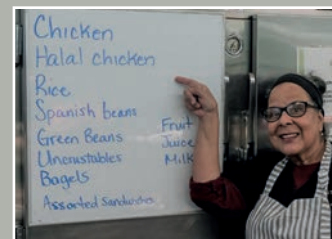 Chicken
Halal chicken
Rice
Spanish beans
Green Beans
Uncrustables
Bagels
Assorted Sandwiches
Fruit
Juice
Milk